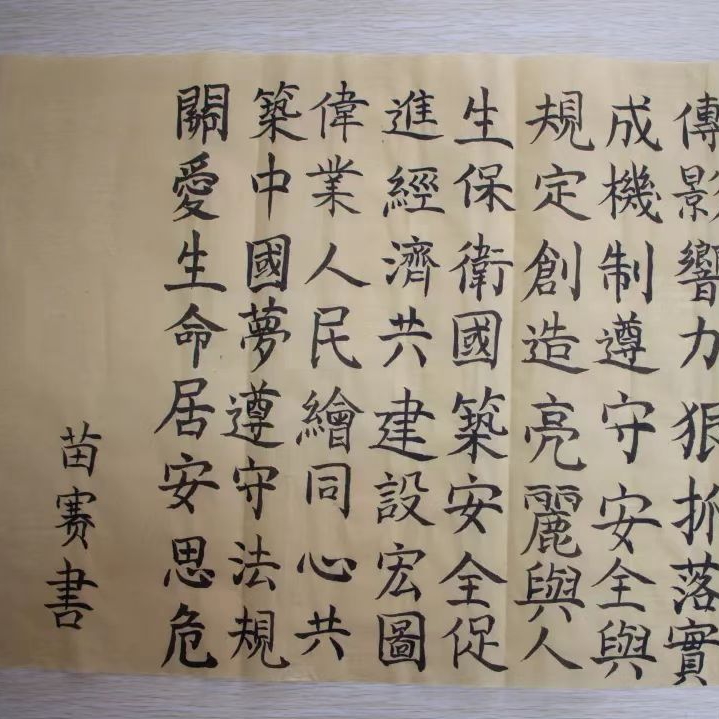 傳影響力狠抓落實
成機制遵守安全與
規定創造亮麗與人
生保衛國築安全促
進經濟共建設宏圖
偉業人民繪同心共
築中國夢遵守法規
關愛生命居安思危
苗賽書